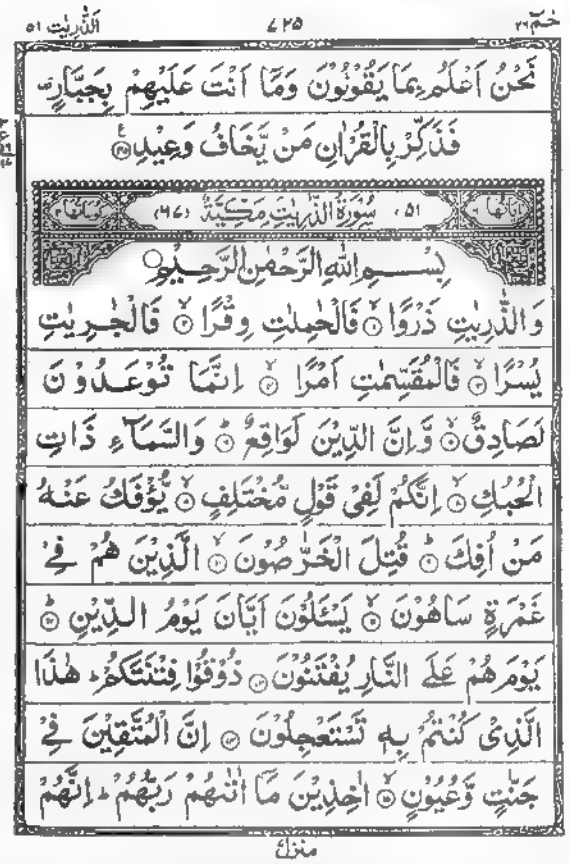 حٰمٓ ٢٦ ٤٢٥ الذّٰرِيٰت ٥١
نَحْنُ اَعْلَمُ بِمَا يَقُوْلُوْنَ وَمَآ اَنْتَ عَلَيْهِمْ بِجَبَّارٍ
فَذَكِّرْ بِالْقُرْاٰنِ مَنْ يَّخَافُ وَعِيْدِ ۝٤٥
اٰيَاتُهَا ٦٠ (٥١) سُوْرَةُ الذّٰرِيٰتِ مَكِّيَّةٌ (٦٧) رُكُوْعَاتُهَا ٣
بِسْمِ اللّٰهِ الرَّحْمٰنِ الرَّحِيْمِ ۝
وَالذّٰرِيٰتِ ذَرْوًا ۝١ فَالْحٰمِلٰتِ وِقْرًا ۝٢ فَالْجٰرِيٰتِ
يُسْرًا ۝٣ فَالْمُقَسِّمٰتِ اَمْرًا ۝٤ اِنَّمَا تُوْعَدُوْنَ
لَصَادِقٌ ۝٥ وَّاِنَّ الدِّيْنَ لَوَاقِعٌ ۝٦ وَالسَّمَآءِ ذَاتِ
الْحُبُكِ ۝٧ اِنَّكُمْ لَفِيْ قَوْلٍ مُّخْتَلِفٍ ۝٨ يُّؤْفَكُ عَنْهُ
مَنْ اُفِكَ ۝٩ قُتِلَ الْخَرّٰصُوْنَ ۝١٠ الَّذِيْنَ هُمْ فِيْ
غَمْرَةٍ سَاهُوْنَ ۝١١ يَسْـَٔلُوْنَ اَيَّانَ يَوْمُ الدِّيْنِ ۝١٢
يَوْمَ هُمْ عَلَى النَّارِ يُفْتَنُوْنَ ۝١٣ ذُوْقُوْا فِتْنَتَكُمْ ؕ هٰذَا
الَّذِيْ كُنْتُمْ بِهٖ تَسْتَعْجِلُوْنَ ۝١٤ اِنَّ الْمُتَّقِيْنَ فِيْ
جَنّٰتٍ وَّعُيُوْنٍ ۝١٥ اٰخِذِيْنَ مَآ اٰتٰىهُمْ رَبُّهُمْ ؕ اِنَّهُمْ
منزل